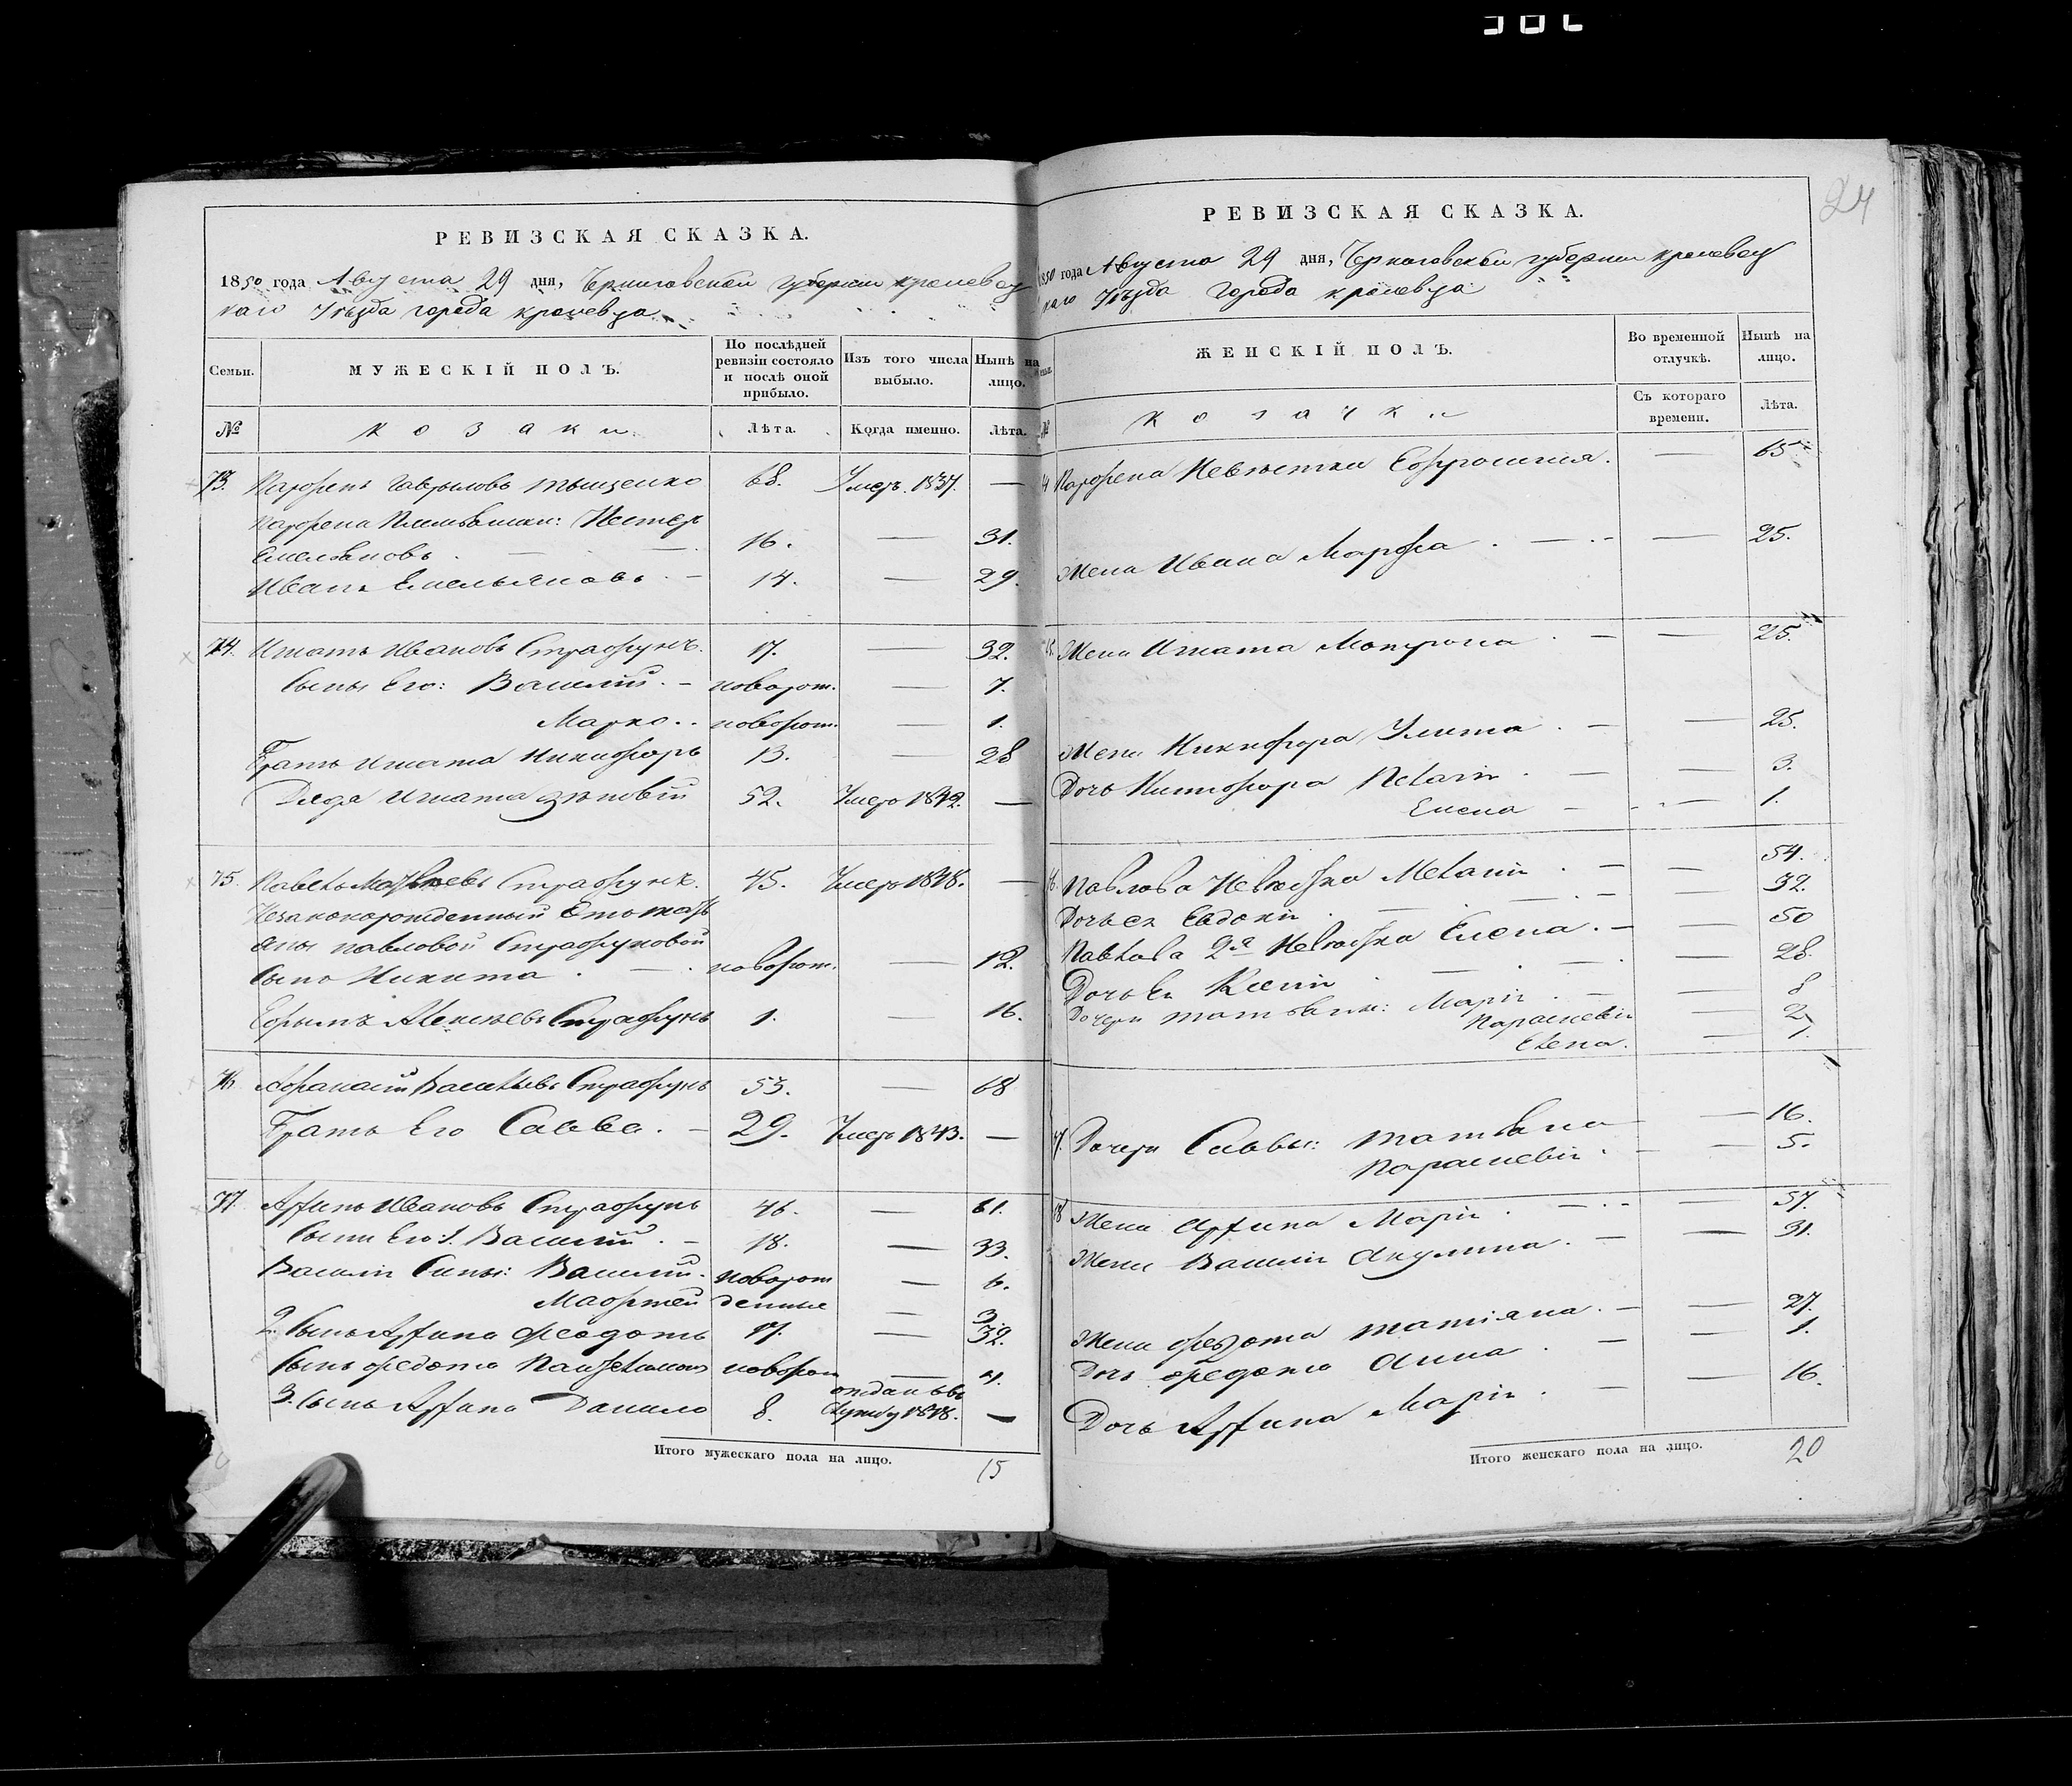 24
РЕВИЗСКАЯ СКАЗКА.
1850 года Августа 29 дня, Черниговской губернии кролевец
каго Уѣзда города кролевца
Семьи.
МУЖЕСКІЙ ПОЛЪ.
По послѣдней ревизіи состояло и послѣ оной прибыло.
Изъ того числа выбыло.
Нынѣ на лицо.
№
козаки
Лѣта.
Когда именно.
Лѣта.
73. Парфенъ Гавриловъ Тыщенко 68. Умеръ 1837. —
Парфена Племянники: Нестеръ
Емельяновъ . — — 16. — 31.
Иванъ Емельяновъ . — 14. — 29.
74. Игнатъ Ивановъ Страфунъ. 17. — 32.
Сыны Его: Василий. — новорож. — 7.
Марко. . новорож. — 1.
Братъ Игната Никифоръ 13. — 28
Дядя Игната Зѣновій 52. Умеръ 1842. —
75. Павелъ Матвѣевъ Страфунъ. 45. Умеръ 1848. —
Незаконорожденный Отъ
Павловой Страфуновой
сынъ Никита . — новорож. — 12.
Ефримъ Алексѣевъ Страфунъ 1. — 16.
76. Афанасій Васильевъ Страфунъ 53. — 68
Братъ Его Савва. — 29. Умеръ 1843. —
77. Архипъ Ивановъ Страфунъ 46. — 61.
Сыны Его: 1. Василий . — 18. — 33.
Василія Сыны: Василий. новорож — 6.
Матфей денные — 3.
2. Сынъ Архипа Феодотъ 17. — 32.
Сынъ Федота Пантелимонъ новорож — 4.
3. Сынъ Архипа Данило 8. отданъ въ службу 1848. —
Итого мужескаго пола на лицо. 15
РЕВИЗСКАЯ СКАЗКА.
1850 года Августа 29 дня, Черниговской губернии кролевец
каго Уѣзда города кролевца
ЖЕНСКІЙ ПОЛЪ.
Во временной отлучкѣ.
Нынѣ на лицо.
№
козачки
Съ котораго времени.
Лѣта.
Парфена Невѣстка Ефросиния. — 65
Жена Ивана Марфа . — . - — 25.
Жена Игната Мотрона . — — 25.
Жена Никифора Улита . — — 25.
Дочь Никифора Пелагія . — — 3.
Елена — — 1.
Павлова Невѣстка Меланія . — — 54.
Дочь ея Евдокія . — 32.
Павлова 2я Невѣстка Елена. — — 50
Дочь Ея Ксенія . — 28.
Дочери Татьяны: Марія . — — 8
Параскевія — 2
Елена. — 1.
Дочери Саввы: Татьяна — 16.
Параскевія . — — 5.
Жена Архипа Марія . — . - — 57.
Жена Василія Акулина. — — 31.
Жена Федота Татіяна. — — 27.
Дочь Федота Анна . — — 1.
Дочь Архипа Марія . — — 16.
Итого женскаго пола на лицо. 20